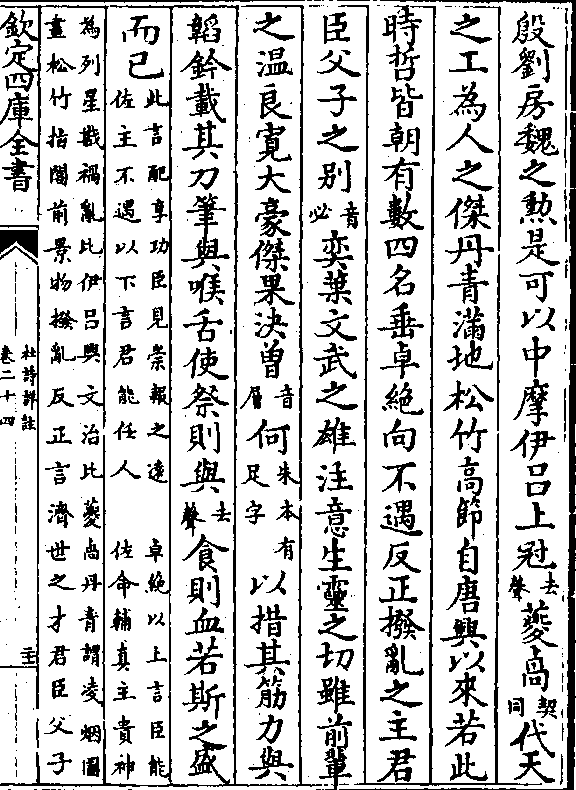 殷劉房魏之勲是可以中摩伊吕上冠去聲夔卨契同代天
之工為人之傑丹青滿地松竹高節自唐興以來若此
時哲皆朝有數四名垂卓絶向不遇反正撥亂之主君
臣父子之别音必奕葉文武之雄注意生靈之切雖前輩
之温良寛大豪傑果決曽音層何朱本有足字以措其筋力與
韜鈐載其刀筆與喉舌使祭則與去聲食則血若斯之盛
而已
此言配享功臣見崇報之逺
佐主不遇以下言君能任人
卓絶以上言臣能
佐命輔真主貴神
為列星戡禍亂比伊吕興文治比夔卨丹青謂凌烟圖
畫松竹指閣前景物撥亂反正言濟世之才君臣父子
欽定四庫全書
杜詩詳註
卷二十四